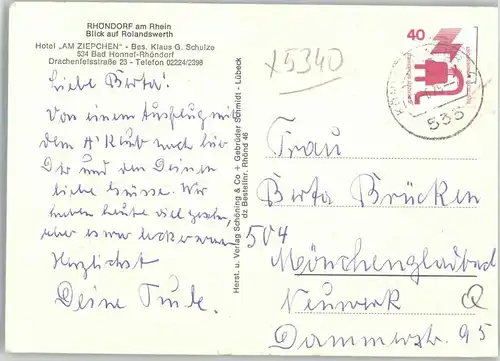 RHÖNDORF am Rhein
Blick auf Rolandswerth
Hotel „AM ZIEPCHEN" - Bes. Klaus G. Schulze
534 Bad Honnef-Rhöndorf
Drachenfelsstraße 23 - Telefon 02224/2398
x5340
40
535
Liebe Berta!
Von einem Ausflug mit
dem Klub
Dir und den Deinen
liebe Grüsse. Wir
haben heute viel
aber es war
Herzlichst
Deine Trude.
Herst. u. Verlag Schöning & Co + Gebrüder Schmidt - Lübeck
dz Bestellnr. Rhönd 46
Frau
Berta Brücken
504
Mönchengladbach
Neuwerk
Dammerstr. 95